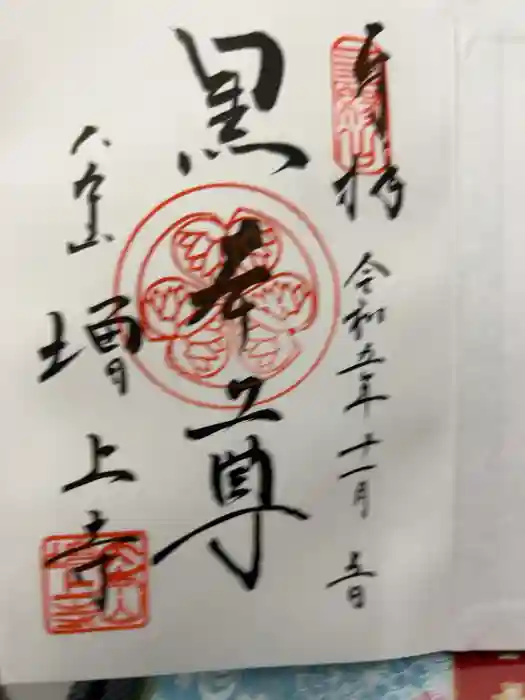 奉拝
令和五年十一月五日
黒本尊
大本山
増上寺